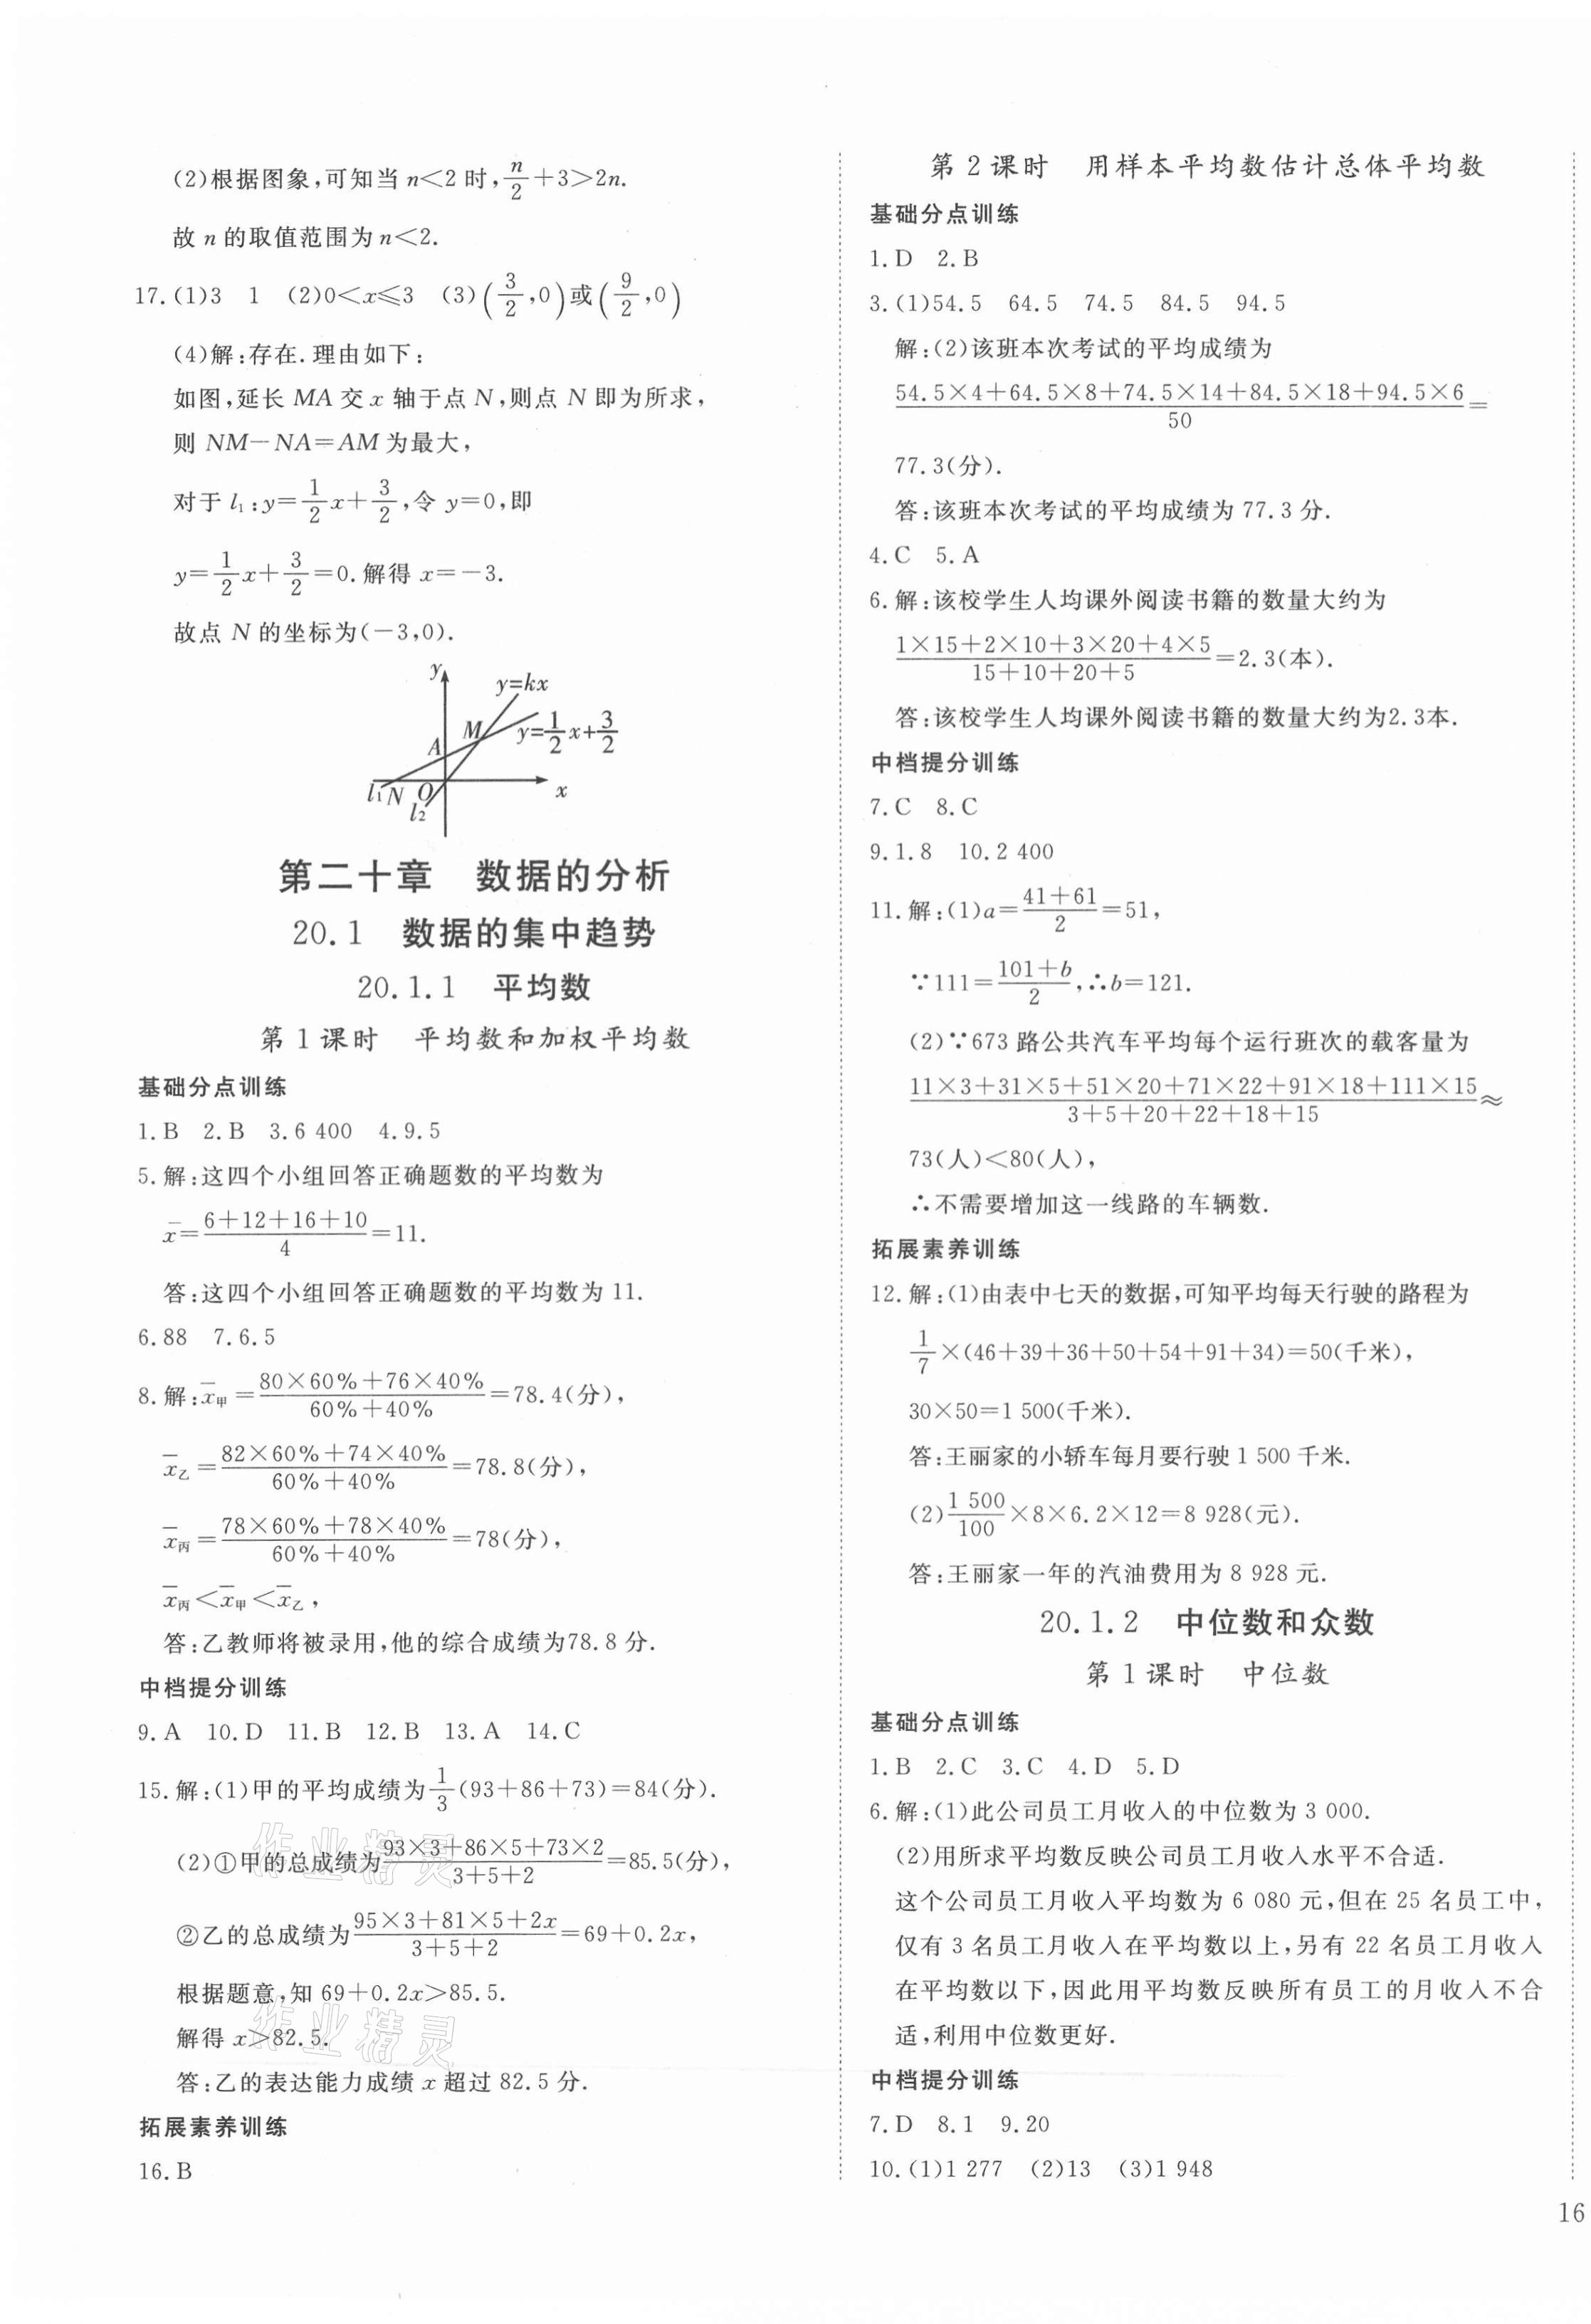 (2)根据图象,可知当 n<2 时,n/2+3>2n.
故 n 的取值范围为 n<2.
17.(1)3 1 (2)0<x≤3 (3)(3/2,0)或(9/2,0)
(4)解:存在.理由如下:
如图,延长 MA 交 x 轴于点 N,则点 N 即为所求,
则 NM-NA=AM 为最大,
对于 l₁:y=1/2x+3/2,令 y=0,即
y=1/2x+3/2=0.解得 x=-3.
故点 N 的坐标为(-3,0).
y
y=kx
M
y=1/2x+3/2
A
l₁ N O x
l₂
第二十章 数据的分析
20.1 数据的集中趋势
20.1.1 平均数
第 1 课时 平均数和加权平均数
基础分点训练
1.B 2.B 3.6 400 4.9.5
5.解:这四个小组回答正确题数的平均数为
x̄=(6+12+16+10)/4=11.
答:这四个小组回答正确题数的平均数为 11.
6.88 7.6.5
8.解:x̄甲=(80×60%+76×40%)/(60%+40%)=78.4(分),
x̄乙=(82×60%+74×40%)/(60%+40%)=78.8(分),
x̄丙=(78×60%+78×40%)/(60%+40%)=78(分),
x̄丙<x̄甲<x̄乙,
答:乙教师将被录用,他的综合成绩为78.8 分.
中档提分训练
9.A 10.D 11.B 12.B 13.A 14.C
15.解:(1)甲的平均成绩为1/3(93+86+73)=84(分).
(2)①甲的总成绩为(93×3+86×5+73×2)/(3+5+2)=85.5(分),
②乙的总成绩为(95×3+81×5+2x)/(3+5+2)=69+0.2x,
根据题意,知 69+0.2x>85.5.
解得 x>82.5.
答:乙的表达能力成绩 x 超过 82.5 分.
作业精灵
作业精灵
拓展素养训练
16.B
第 2 课时 用样本平均数估计总体平均数
基础分点训练
1.D 2.B
3.(1)54.5 64.5 74.5 84.5 94.5
解:(2)该班本次考试的平均成绩为
(54.5×4+64.5×8+74.5×14+84.5×18+94.5×6)/50=
77.3(分).
答:该班本次考试的平均成绩为 77.3 分.
4.C 5.A
6.解:该校学生人均课外阅读书籍的数量大约为
(1×15+2×10+3×20+4×5)/(15+10+20+5)=2.3(本).
答:该校学生人均课外阅读书籍的数量大约为2.3本.
中档提分训练
7.C 8.C
9.1.8 10.2 400
11.解:(1)a=(41+61)/2=51,
∵111=(101+b)/2,∴b=121.
(2)∵673 路公共汽车平均每个运行班次的载客量为
(11×3+31×5+51×20+71×22+91×18+111×15)/(3+5+20+22+18+15)≈
73(人)<80(人),
∴不需要增加这一线路的车辆数.
拓展素养训练
12.解:(1)由表中七天的数据,可知平均每天行驶的路程为
1/7×(46+39+36+50+54+91+34)=50(千米),
30×50=1 500(千米).
答:王丽家的小轿车每月要行驶 1 500 千米.
(2)1 500/100×8×6.2×12=8 928(元).
答:王丽家一年的汽油费用为 8 928 元.
20.1.2 中位数和众数
第 1 课时 中位数
基础分点训练
1.B 2.C 3.C 4.D 5.D
6.解:(1)此公司员工月收入的中位数为 3 000.
(2)用所求平均数反映公司员工月收入水平不合适.
这个公司员工月收入平均数为 6 080 元,但在 25 名员工中,
仅有 3 名员工月收入在平均数以上,另有 22 名员工月收入
在平均数以下,因此用平均数反映所有员工的月收入不合
适,利用中位数更好.
中档提分训练
7.D 8.1 9.20
10.(1)1 277 (2)13 (3)1 948
16